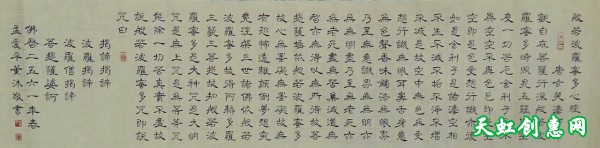 般若波羅蜜多心經
唐玄奘譯
觀自在菩薩行深般若波
羅蜜多時照見五蘊皆空
度一切苦厄舍利子色不
異空空不異色色即是空
空即是色受想行識亦復
如是舍利子是諸法空相
不生不滅不垢不淨不增
不減是故空中無色無受
想行識無眼耳鼻舌身意
無色聲香味觸法無眼界
乃至無意識界無無明亦
無無明盡乃至無老死亦
無老死盡無苦集滅道無
智亦無得以無所得故菩
提薩埵依般若波羅蜜多
故心無罣礙無罣礙故無
有恐怖遠離顛倒夢想究
竟涅槃三世諸佛依般若
波羅蜜多故得阿耨多羅
三藐三菩提故知般若波
羅蜜多是大神咒是大明
咒是無上咒是無等等咒
能除一切苦真實不虛故
說般若波羅蜜多咒即說
咒曰
揭諦揭諦
波羅揭諦
波羅僧揭諦
菩提薩婆訶
佛曆二五六一年春
沐敬書
天虹创意网